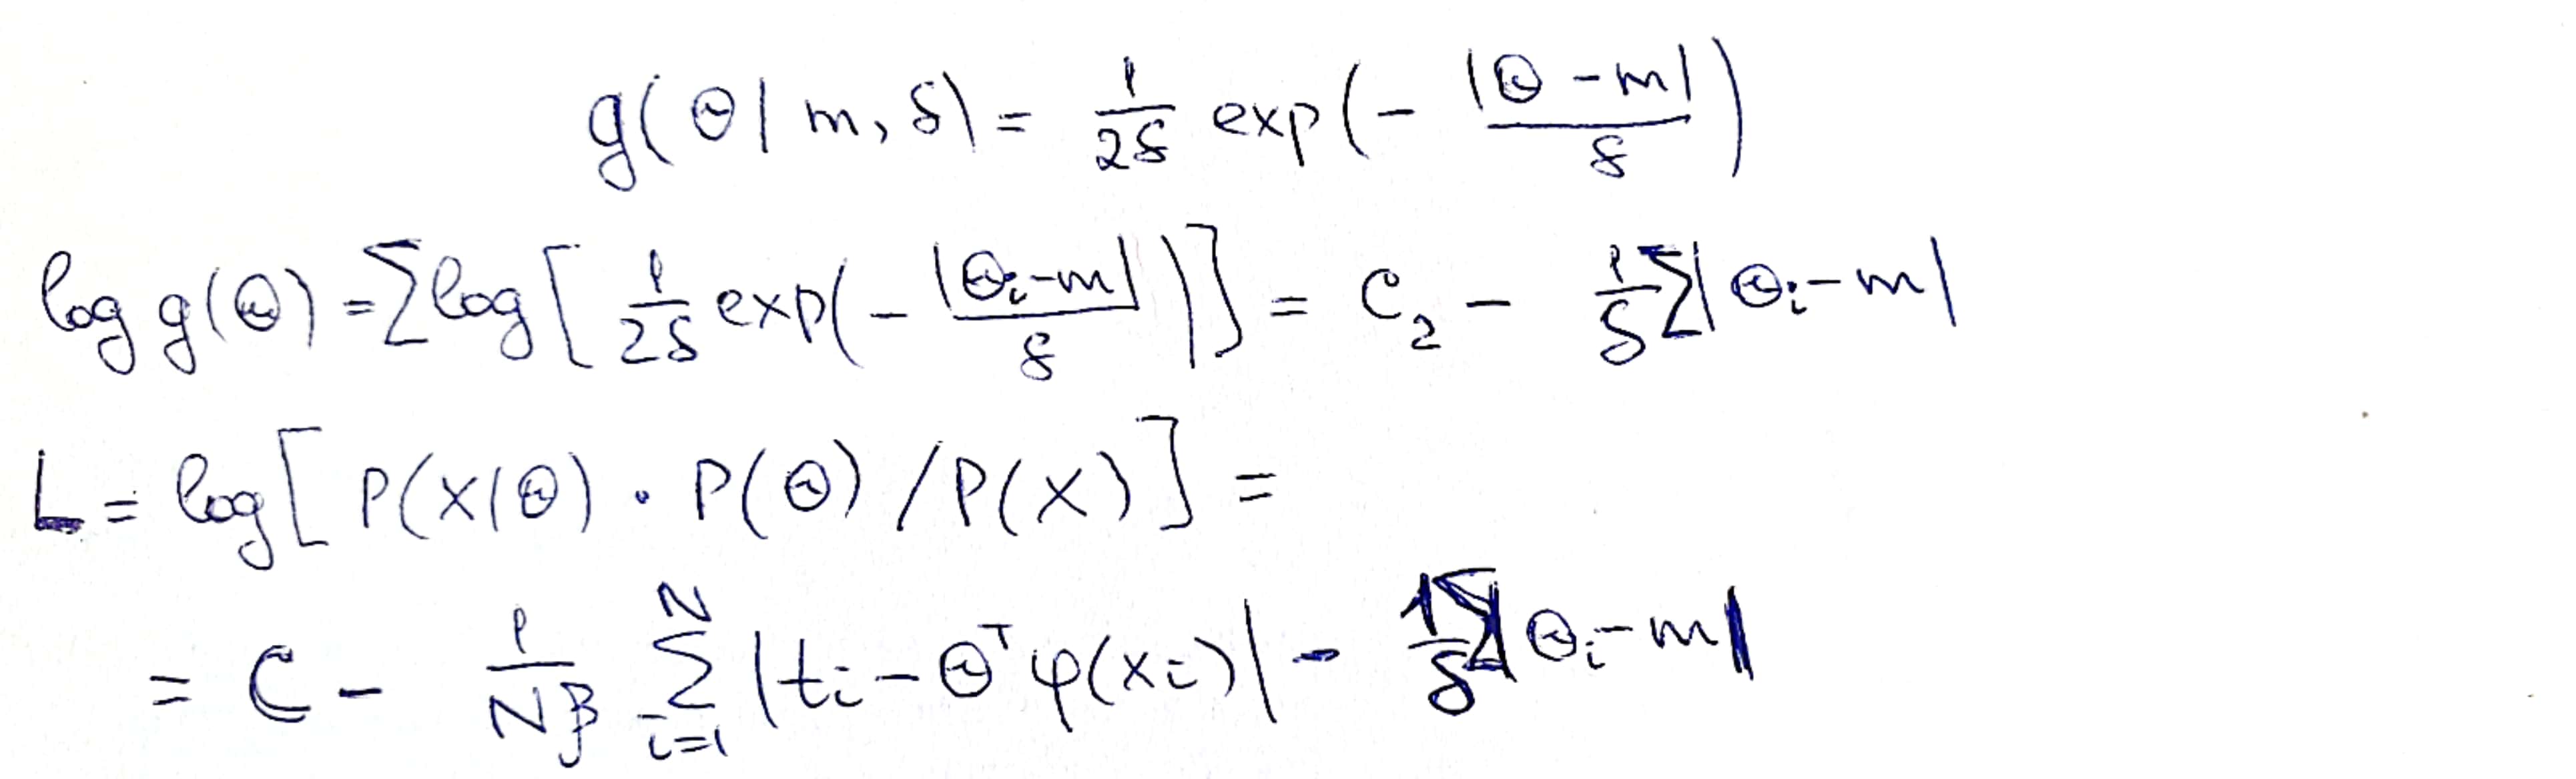 g(Θ| m, δ) = 1/2δ exp(- |Θ - m|/δ)
log g(Θ) = Σ log[ 1/2δ exp(- |Θi - m|/δ)] = C₂ - 1/δ Σ|Θi - m|
L = log[ P(X|Θ) · P(Θ) / P(X) ] =
= C - 1/Nβ Σ_{i=1}^{N} |ti - Θᵀφ(xi)| - 1/δ Σ|Θi - m|